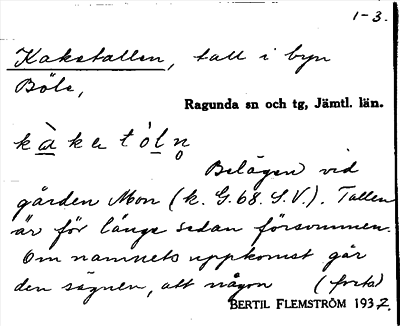 1-3.
Kakstallen, tall i byn
Böle,
Ragunda sn och tg, Jämtl. län.
kàkₑtóln̥
Belägen vid
gården Mon (k. G.68. S.V.). Tallen
är för länge sedan försvunnen.
Om namnets uppkomst går
den sägnen, att någon (forts)
BERTIL FLEMSTRÖM 1937.